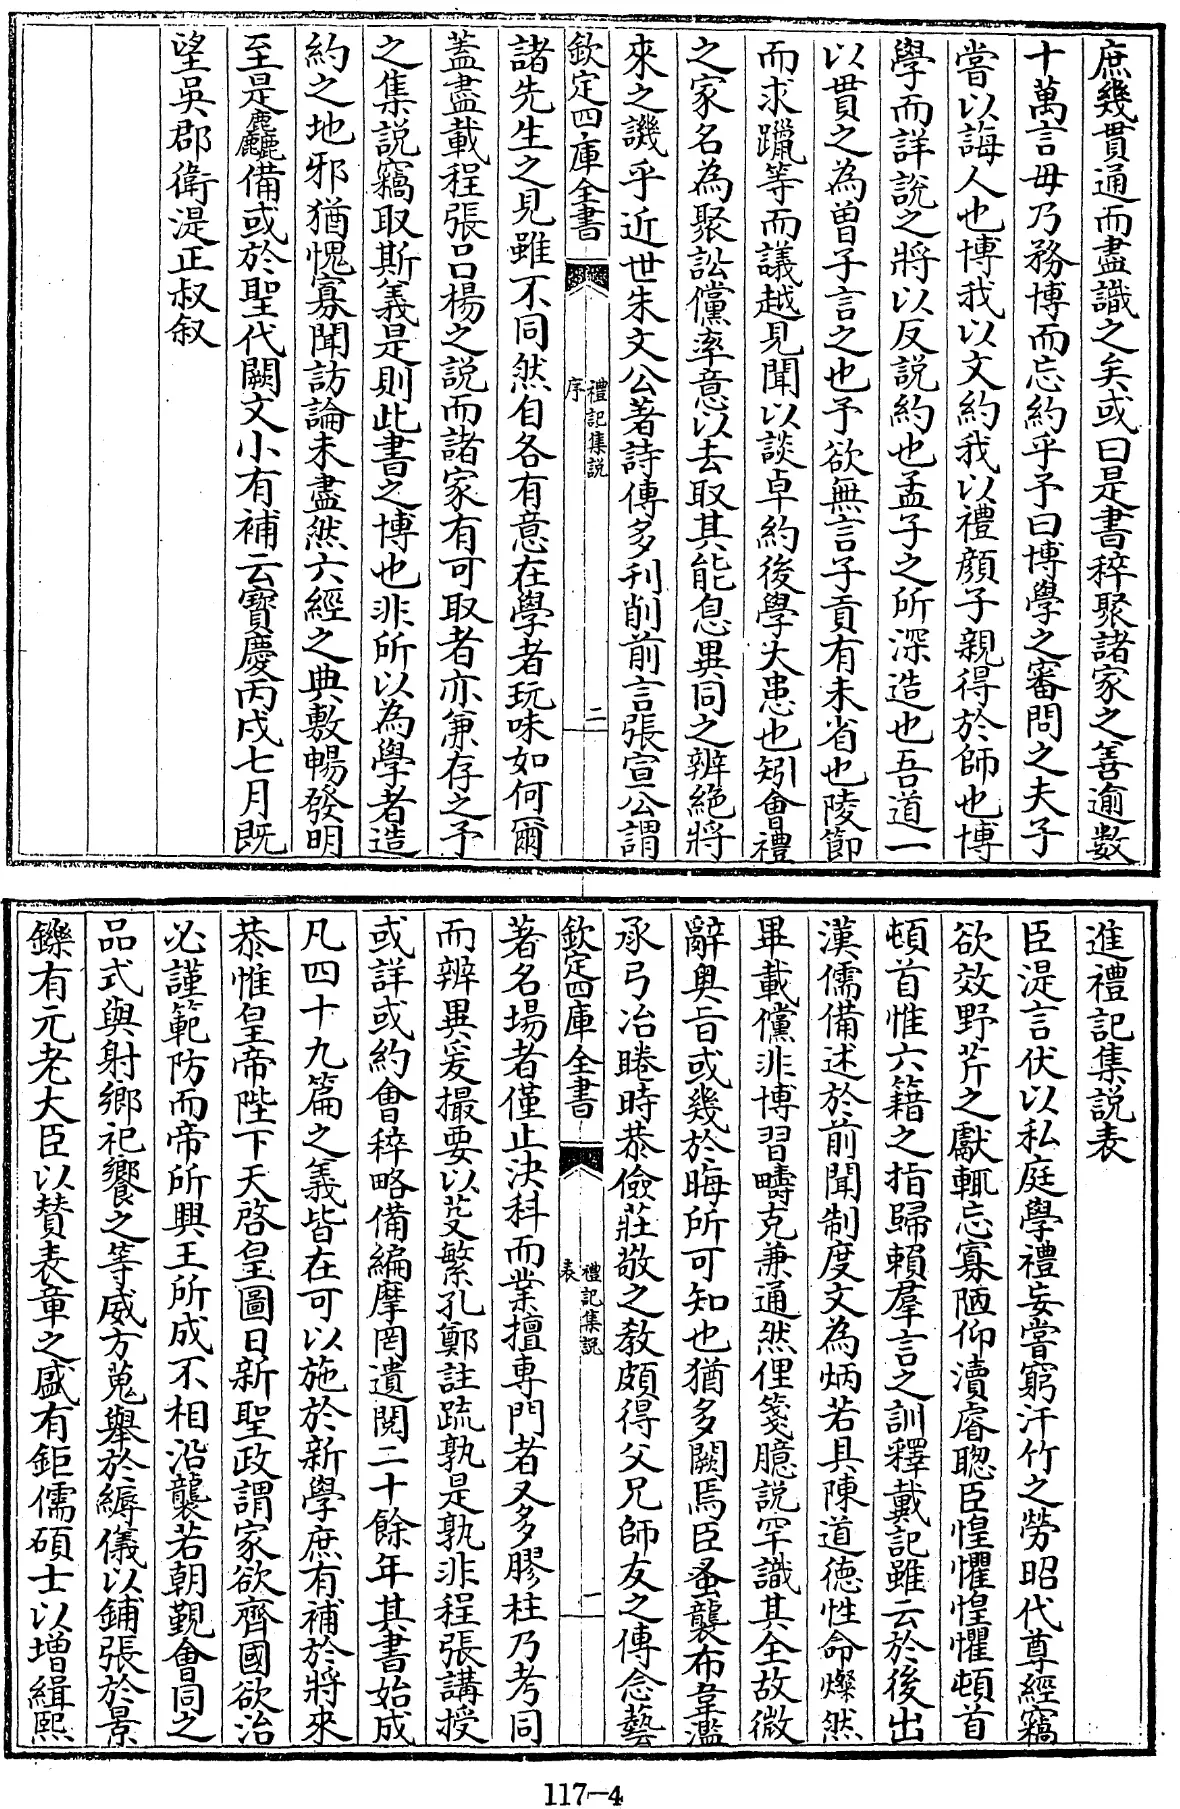 庶幾貫通而盡識之矣或曰是書稡聚諸家之善逾數
十萬言毋乃務博而忘約乎予曰博學之審問之夫子
嘗以誨人也博我以文約我以禮顔子親得於師也博
學而詳說之將以反說約也孟子之所深造也吾道一
以貫之為曽子言之也予欲無言子貢有未省也陵節
而求躐等而議越見聞以談卓約後學大患也矧㑹禮
之家名為聚訟儻率意以去取其能息異同之辨絶將
來之譏乎近世朱文公著詩傳多刋削前言張宣公謂
欽定四庫全書
禮記集説
序
二
諸先生之見雖不同然自各有意在學者玩味如何爾
蓋盡載程張呂楊之説而諸家有可取者亦兼存之予
之集説竊取斯義是則此書之博也非所以為學者造
約之地邪猶愧寡聞訪論未盡然六經之典敷暢發明
至是麤備或於聖代闕文小有補云寳慶丙戌七月既
望吳郡衛湜正叔叙
進禮記集説表
臣湜言伏以私庭學禮妄嘗窮汗竹之勞昭代尊經竊
欲效野芹之獻輒忘寡陋仰瀆睿聰臣惶懼惶懼頓首
頓首惟六籍之指歸賴羣言之訓釋戴記雖云於後出
漢儒備述於前聞制度文為炳若具陳道德性命燦然
畢載儻非博習疇克兼通然俚箋臆說罕識其全故微
辭奥旨或幾於晦所可知也猶多闕焉臣蚤襲布韋濫
承弓冶睠時恭儉莊敬之敎頗得父兄師友之傳念藝
欽定四庫全書
禮記集説
表
一
著名塲者僅止決科而業擅專門者又多膠柱乃考同
而辨異爰撮要以芟繁孔鄭註疏孰是孰非程張講授
或詳或約㑹稡略備編摩罔遺閲二十餘年其書始成
凡四十九篇之義皆在可以施於新學庶有補於將來
恭惟皇帝陛下天啓皇圖日新聖政謂家欲齊國欲治
必謹範防而帝所興王所成不相沿襲若朝覲㑹同之
品式與射鄉祀饗之等威方蒐舉於縟儀以鋪張於景
鑠有元老大臣以賛表章之盛有鉅儒碩士以增緝熙
117-4